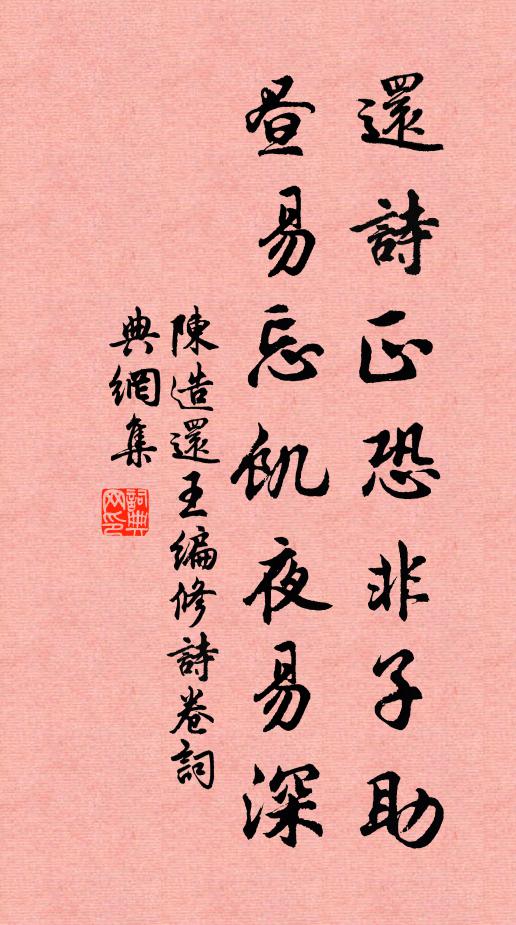 還詩正恐非子助
昼易忘飢夜易深
陳造還王編修詩卷詞
典網集
詞典網印